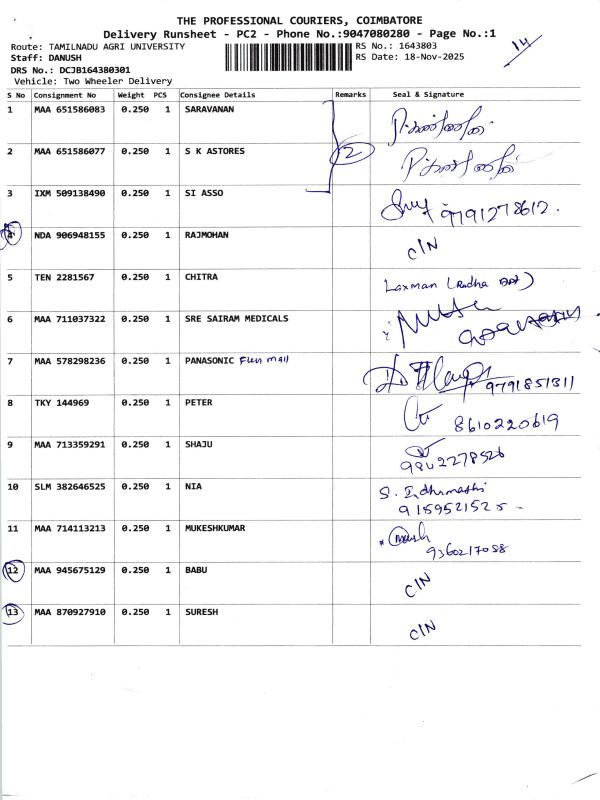 THE PROFESSIONAL COURIERS, COIMBATORE
Delivery Runsheet - PC2 - Phone No.:9047080280 - Page No.:1
14
Route: TAMILNADU AGRI UNIVERSITY RS No.: 1643803
Staff: DANUSH RS Date: 18-Nov-2025
DRS No.: DCJB164380301
Vehicle: Two Wheeler Delivery
S No Consignment No Weight PCS Consignee Details Remarks Seal & Signature
1 MAA 651586083 0.250 1 SARAVANAN
2 MAA 651586077 0.250 1 S K ASTORES 2
3 IXM 509138490 0.250 1 SI ASSO 9791278612.
4 NDA 906948155 0.250 1 RAJMOHAN CIN
5 TEN 2281567 0.250 1 CHITRA Laxman (Radha
6 MAA 711037322 0.250 1 SRE SAIRAM MEDICALS
7 MAA 578298236 0.250 1 PANASONIC Fun mall 9791851311
8 TKY 144969 0.250 1 PETER 8610220619
9 MAA 713359291 0.250 1 SHAJU 9842278526
10 SLM 382646525 0.250 1 NIA S. Indhumathi
9159521525
11 MAA 714113213 0.250 1 MUKESHKUMAR
9360217058
12 MAA 945675129 0.250 1 BABU CIN
13 MAA 870927910 0.250 1 SURESH CIN